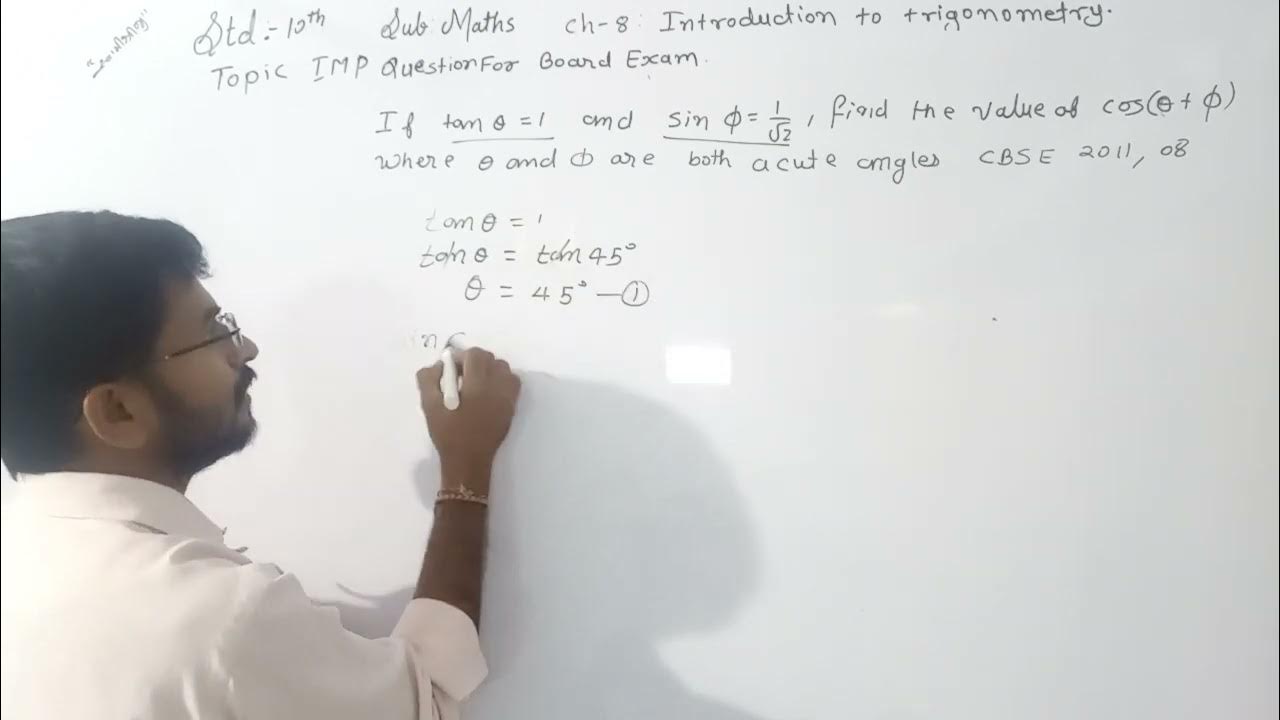 Std :- 10th Sub Maths ch-8 : Introduction to trigonometry.
Topic IMP Question For Board Exam.
If tan θ = 1 and sin ϕ = 1/√2, find the value of cos(θ + ϕ)
where θ and ϕ are both acute angles CBSE 2011, 08
tan θ = 1
tan θ = tan 45°
θ = 45° — ①
in